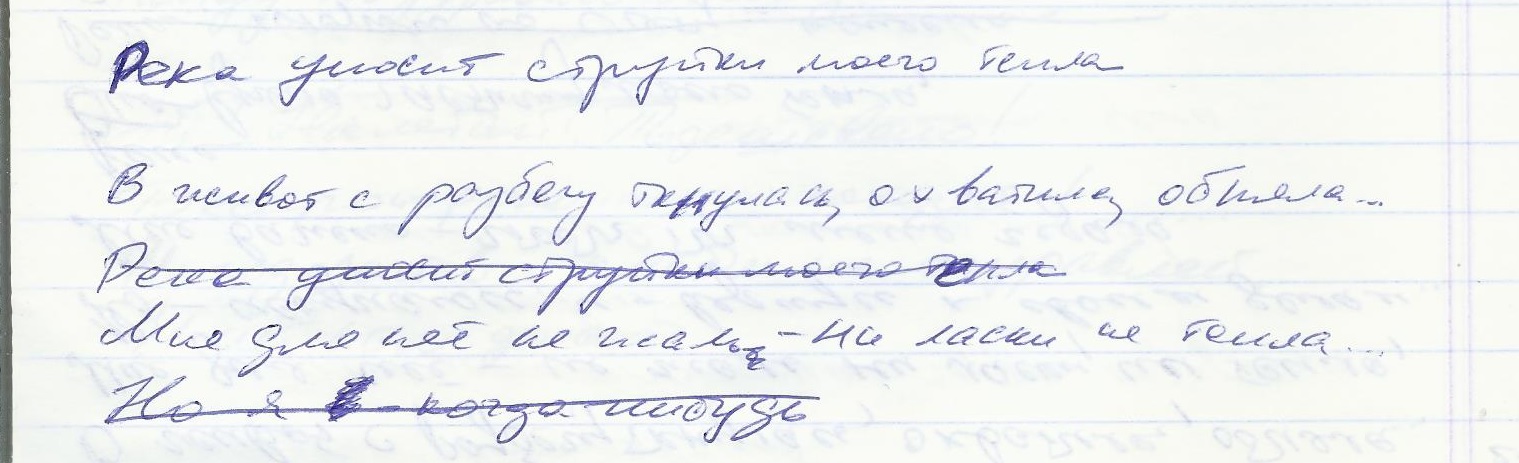 Река уносит струйки моего тепла
В живот с разбегу ткнулась, охватила, обняла...
Река уносит струйки моего тепла
Мне для неё не жаль - ни ласки не тепла...
Но я когда-нибудь